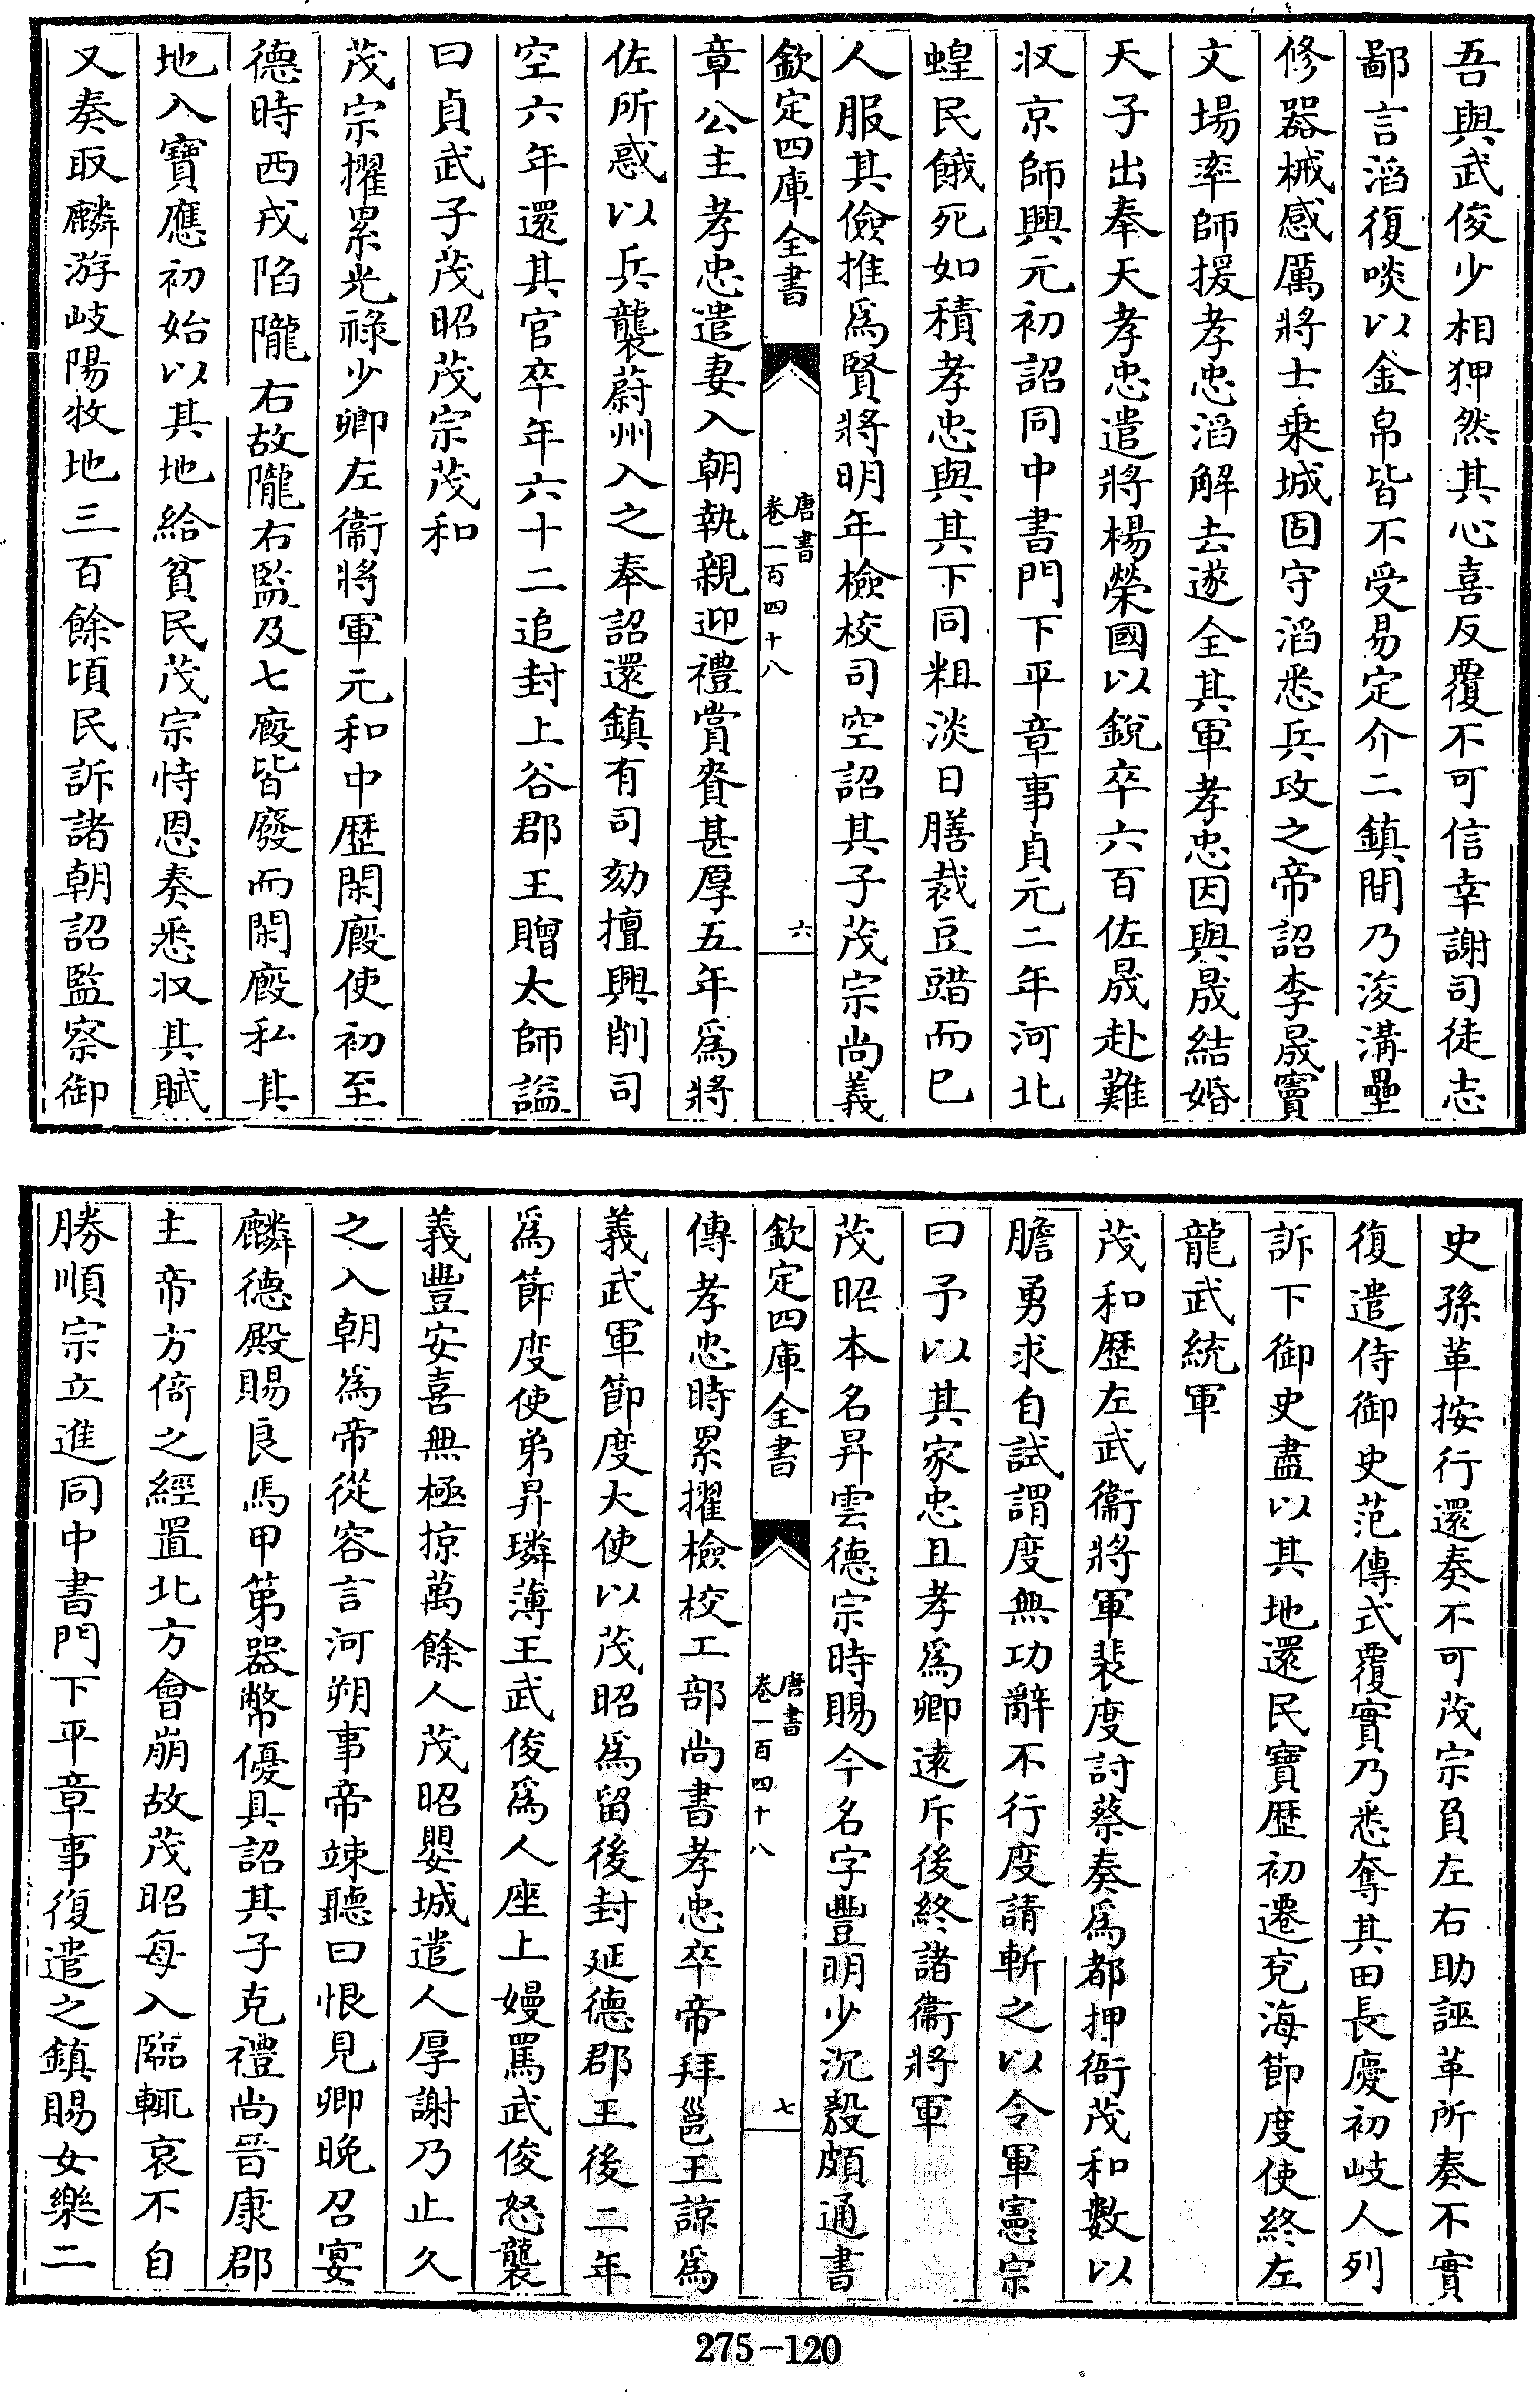 吾與武俊少相狎然其心喜反覆不可信幸謝司徒志
鄙言滔復啖以金帛皆不受易定介二鎮間乃浚溝壘
修器械感厲將士乗城固守滔悉兵攻之帝詔李晟竇
文場率師援孝忠滔解去遂全其軍孝忠因與晟結婚
天子出奉天孝忠遣將楊榮國以銳卒六百佐晟赴難
収京師興元初詔同中書門下平章事貞元二年河北
蝗民餓死如積孝忠與其下同粗淡日膳裁豆䜺而已
人服其儉推爲賢將明年檢校司空詔其子茂宗尚義
欽定四庫全書
唐書
卷一百四十八
六
章公主孝忠遣妻入朝執親迎禮賞賚甚厚五年爲將
佐所惑以兵襲蔚州入之奉詔還鎮有司劾擅興削司
空六年還其官卒年六十二追封上谷郡王贈太師謚
曰貞武子茂昭茂宗茂和
茂宗擢累光祿少卿左衞將軍元和中歴閑廏使初至
德時西戎陷隴右故隴右監及七廏皆廢而閑廏私其
地入寶應初始以其地給貧民茂宗恃恩奏悉収其賦
又奏取麟游岐陽牧地三百餘頃民訴諸朝詔監察御
史孫革按行還奏不可茂宗負左右助誣革所奏不實
復遣侍御史范傳式覆實乃悉奪其田長慶初岐人列
訴下御史盡以其地還民寶歴初遷兖海節度使終左
龍武統軍
茂和歴左武衞將軍裴度討蔡奏爲都押衙茂和數以
膽勇求自試謂度無功辭不行度請斬之以令軍憲宗
曰予以其家忠且孝爲卿逺斥後終諸衞將軍
茂昭本名昇雲德宗時賜今名字豐明少沉毅頗通書
欽定四庫全書
唐書
卷一百四十八
七
傳孝忠時累擢檢校工部尚書孝忠卒帝拜邕王諒爲
義武軍節度大使以茂昭爲留後封延德郡王後二年
爲節度使弟昇璘薄王武俊爲人座上嫚罵武俊怒襲
義豐安喜無極掠萬餘人茂昭嬰城遣人厚謝乃止久
之入朝爲帝從容言河朔事帝竦聽曰恨見卿晚召宴
麟德殿賜良馬甲第器幣優具詔其子克禮尚晉康郡
主帝方倚之經置北方會崩故茂昭每入臨輒哀不自
勝順宗立進同中書門下平章事復遣之鎮賜女樂二
275-120